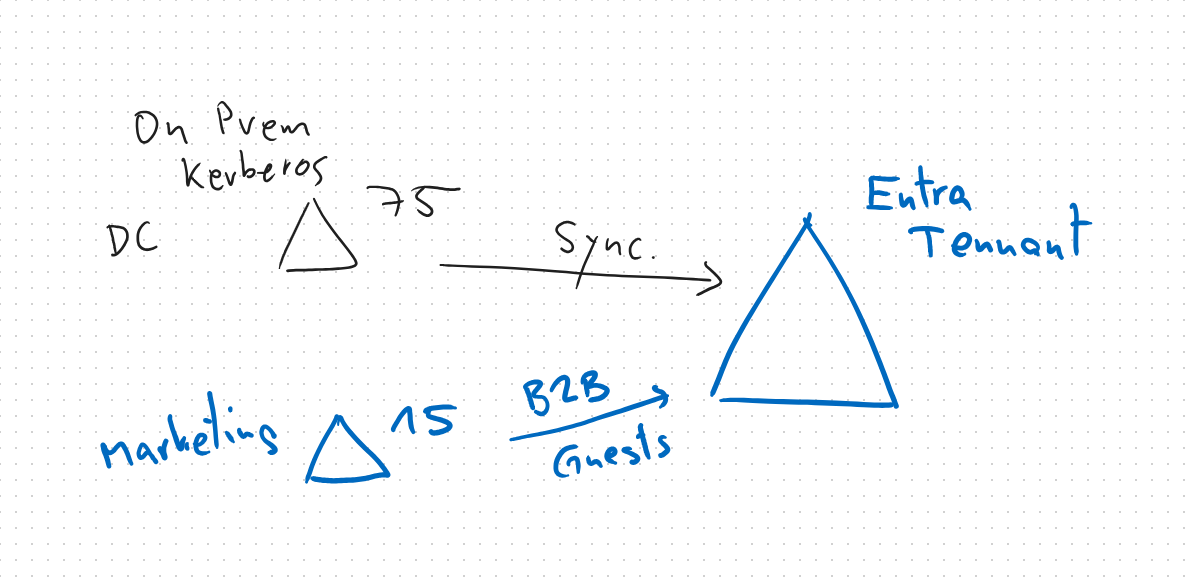 On Prem
Kerberos
DC
75
Sync.
Entra
Tennant
Marketing
15
B2B
Guests